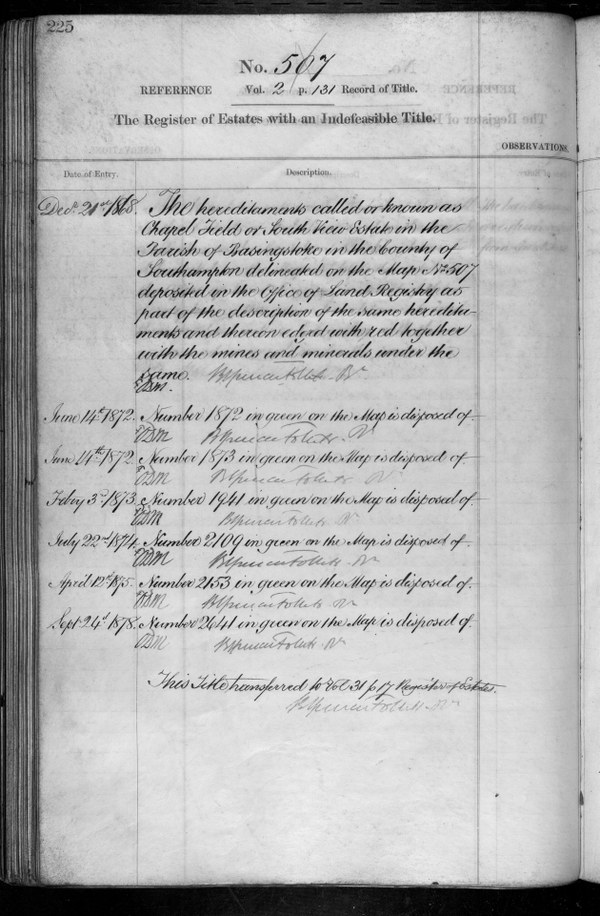 225
No. 507
REFERENCE Vol. 2 p. 131 Record of Title.
The Register of Estates with an Indefeasible Title.
OBSERVATIONS.
Date of Entry. Description.
Decr. 21st 1868. The hereditaments called or known as
Chapel Field or South View Estate in the
Parish of Basingstoke in the County of
Southampton delineated on the Map No. 507
deposited in the Office of Land Registry as
part of the description of the same heredita-
ments and thereon edged with red together
with the mines and minerals under the
same.
June 14th 1872. Number 1872 in green on the Map is disposed of.
June 14th 1872. Number 1873 in green on the Map is disposed of.
Febry 3rd 1873. Number 1941 in green on the Map is disposed of.
July 22nd 1874. Number 2109 in green on the Map is disposed of.
April 12th 1875. Number 2153 in green on the Map is disposed of.
Sept. 24th 1878. Number 2641 in green on the Map is disposed of.
This Title transferred to Vol. 31 p 17 Register of Estates.